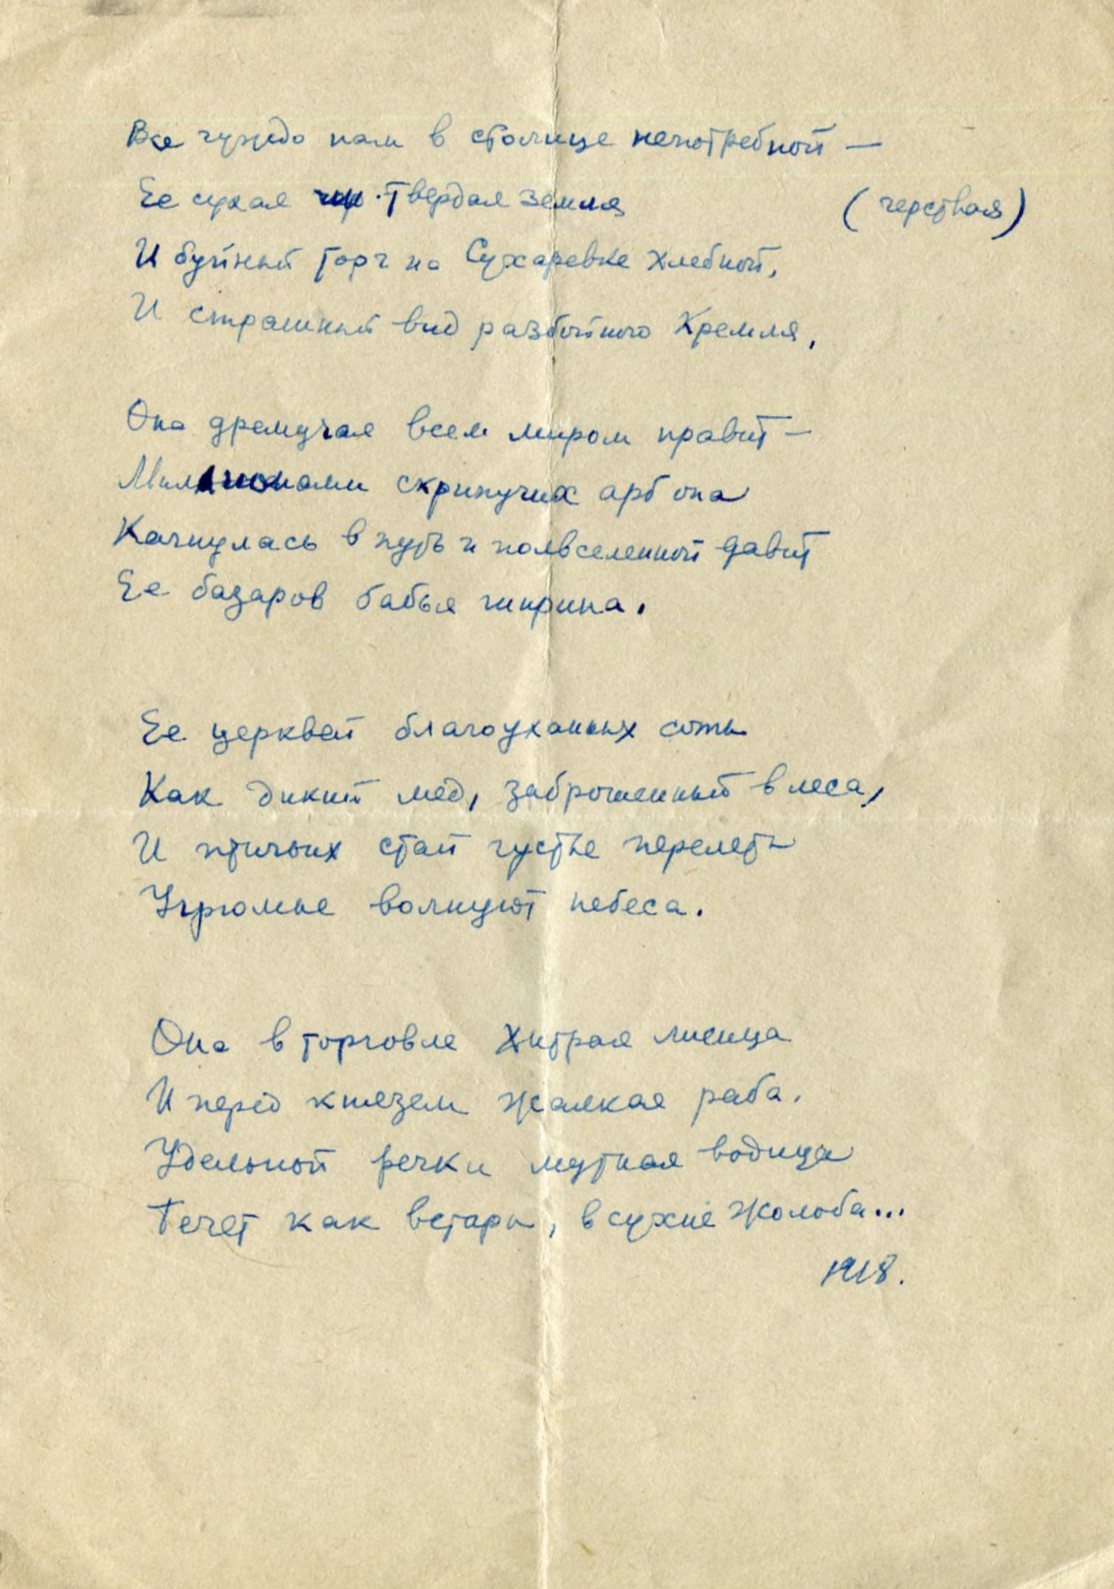 Все чуждо нам в столице непотребной —
Ее сухая твердая земля (черствая)
И буйный торг на Сухаревке хлебной,
И страшный вид разбойного Кремля,
Она дремучая всем миром правит —
Миллионами скрипучих арб она
Качнулась в путь и полвселенной давит
Ее базаров бабья ширина.
Ее церквей благоуханных соты
Как дикий мед, заброшенный в леса,
И птичьих стай густые перелеты
Угрюмые волнуют небеса.
Она в торговле хитрая лисица
И перед князем жалкая раба.
Удельной речки мутная водица
Течет как встарь, в сухие жолоба...
1918.